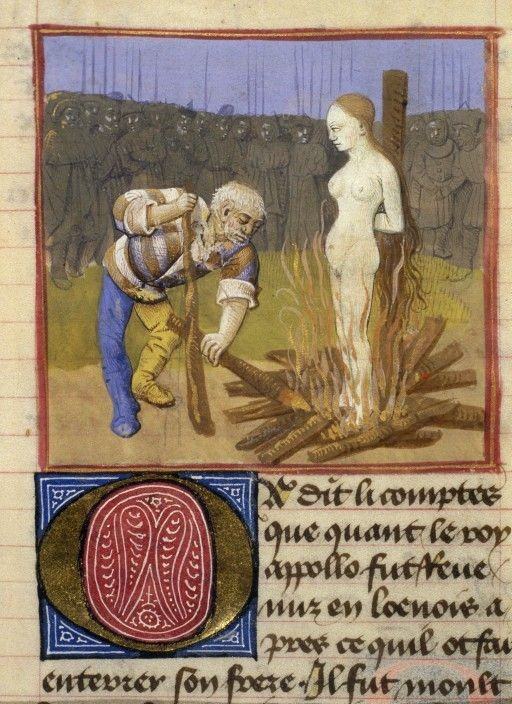 Or dit li comptes
que quant le roy
appollo fut reue
nuz en loenois a
pres ce quil ot fai
enterrer son frere. Il fut moult